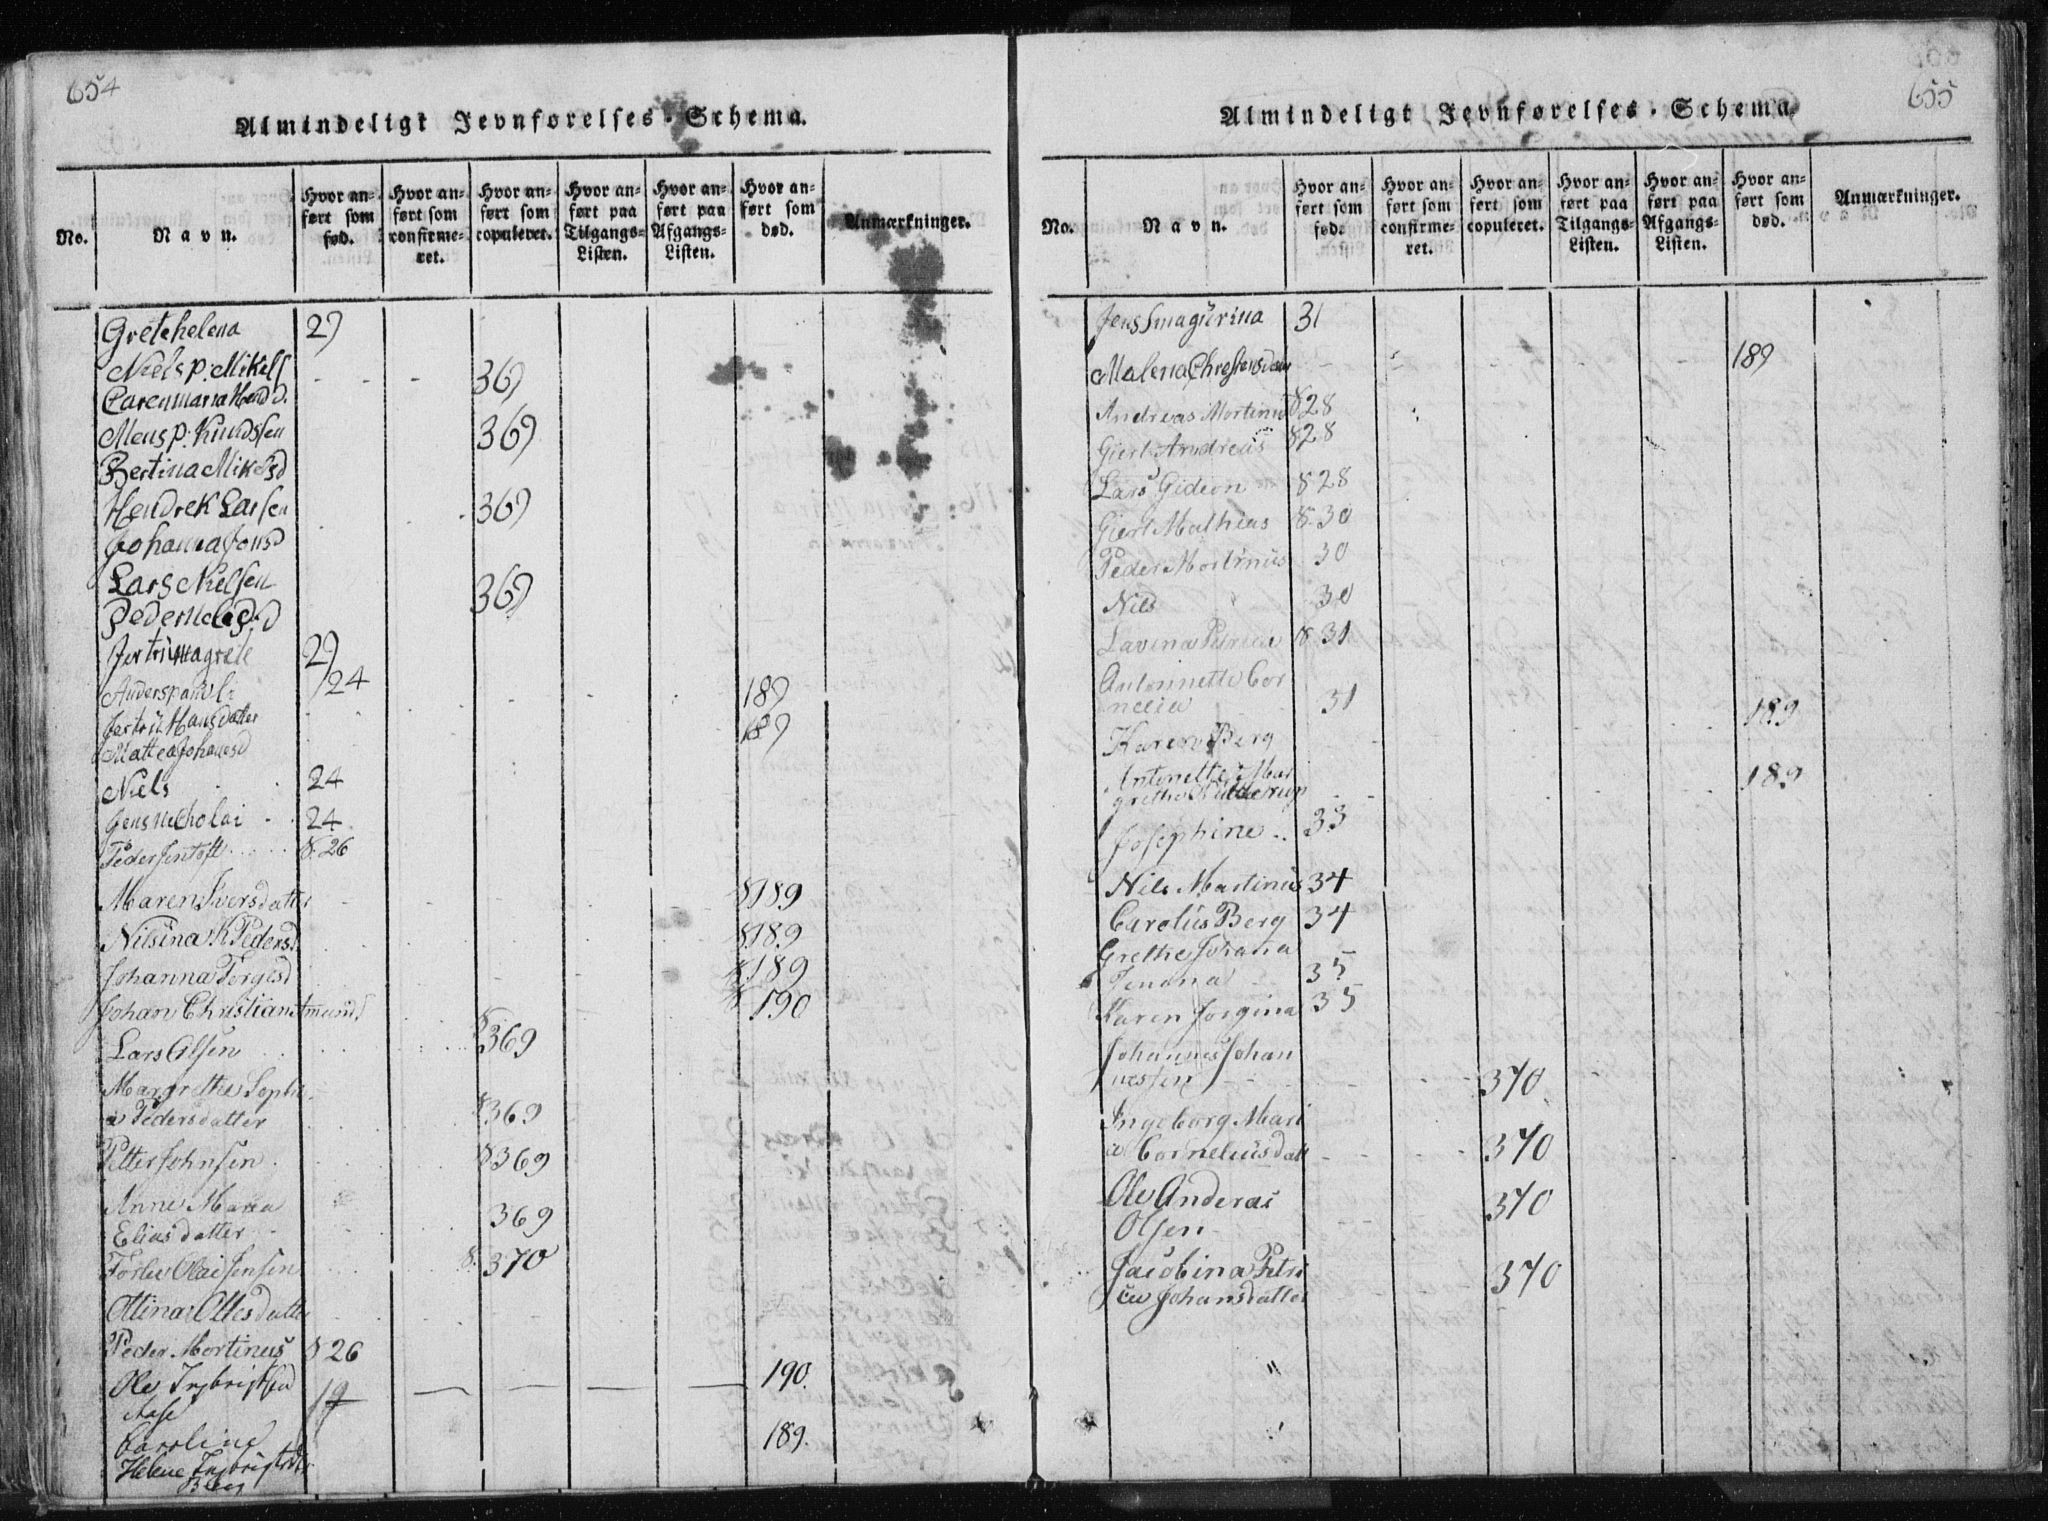 654
Almindeligt Jevnførelses-Schema.
No.
Navn.
Hvor anført som fød.
Hvor anført som confirmeret.
Hvor anført som copuleret.
Hvor anført paa Tilgangs-Listen.
Hvor anført paa Afgangs-Listen.
Hvor anført som død.
Anmærkninger.
Gretehelena 29
Niels p: Mikels 369
Carenmaria Hend d.
Mens p: Knudssen 369
Bertina Mikelsd
Hendrek Larsen 369
Johanna Jonsd
Lars Nielsen 369
Jertrumagrete 29
Anderspauli 24 189
Jertru Hansdatter 189
Mattea Johansd
Niels 24
Jens Nicholai 24
Peder Jentoft 8. 26
Maren Iversdatter 8 189
Nilsina K Pedersd 8 189
Johanna Torgesd 8 189
Johan Christian Amunds 8 190
Lars Olsen 8 369
Margrethe Sophi
a Pedersdatter 8 369
Petter Johnsen 8 369
Anne Maria
Eliasdatter 369
Torlev Olai Jensen 8. 370
Ottina Ottesdatter
Peder Mortinus 8 26
Ole Ingbrigtsen 190.
Aase 19
Caroline 189.
Helene Ingbrigtsdtr
Berg
655
Almindeligt Jevnførelses-Schema.
No.
Navn.
Hvor anført som fød.
Hvor anført som confirmeret.
Hvor anført som copuleret.
Hvor anført paa Tilgangs-Listen.
Hvor anført paa Afgangs-Listen.
Hvor anført som død.
Anmærkninger.
Jens Smagurina 31
Malena Chrestensdatter 189
Andreas Mortinus 8 28
Giert Andreas 8 28
Lars Gideon 8 28
Giert Mathias 8. 30
Peder Mortinus 30
Nils 30
Lavina Petrica 8. 31
Antonnette Cor
nelia 31
Karen Berg 189
Antonette Mar
grethe 189
Josephine 33
Nils Martinus 34
Carolus Berg 34
Grethe Johana
35
Karen Jorgina 35
Johannes Johan
nessen 370
Ingeborg Mari
a Corneliusdatt 370
Ole Anderas 370
Olsen
Jacobina Petri 370
ca Johansdatter